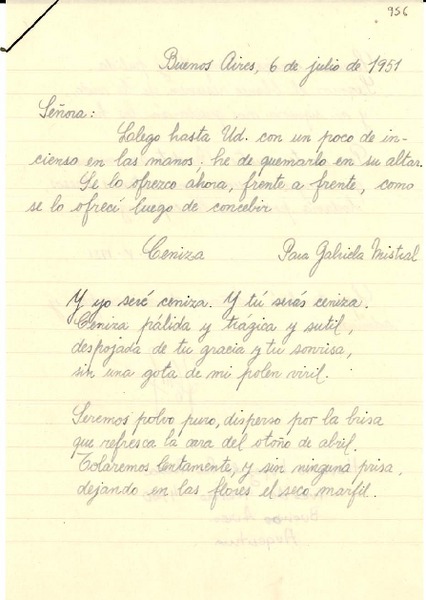 956
Buenos Aires, 6 de julio de 1951
Señora:
Llego hasta Ud. con un poco de in-
cienso en las manos: he de quemarlo en su altar.
Se lo ofrezco ahora, frente a frente, como
se lo ofrecí luego de concebir
Ceniza Para Gabriela Mistral
Y yo seré ceniza. Y tú serás ceniza.
Ceniza pálida y trágica y sutil,
despojada de tu gracia y tu sonrisa,
sin una gota de mi polen viril.
Seremos polvo puro, disperso por la brisa
que refresca la cara del otoño de abril.
Volaremos lentamente, y sin ninguna prisa,
dejando en las flores el seco marfil.
Buenos Aires
Argentina